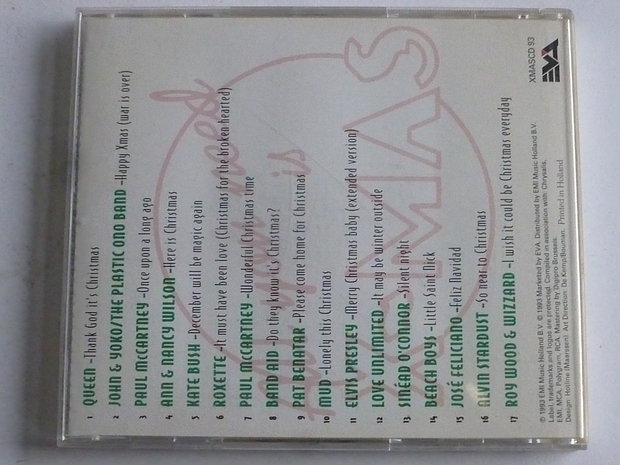 1 QUEEN -Thank God it's Christmas
2 JOHN & YOKO/THE PLASTIC ONO BAND -Happy Xmas (war is over)
3 PAUL McCARTNEY -Once upon a long ago
4 ANN & NANCY WILSON -Here is Christmas
5 KATE BUSH -December will be magic again
6 ROXETTE -It must have been love (Christmas for the broken hearted)
7 PAUL McCARTNEY -Wonderful Christmas time
8 BAND AID -Do they know it's Christmas?
9 PAT BENATAR -Please come home for Christmas
10 MUD -Lonely this Christmas
11 ELVIS PRESLEY -Merry Christmas baby (extended version)
12 LOVE UNLIMITED -It may be winter outside
13 SINÉAD O'CONNOR -Silent night
14 BEACH BOYS -Little Saint Nick
15 JOSÉ FELICIANO -Feliz Navidad
16 ALVIN STARDUST -So near to Christmas
17 ROY WOOD & WIZZARD -I wish it could be Christmas everyday
℗ 1993 EMI Music Holland B.V. © 1993 Marketed by EVA. Distributed by EMI Music Holland B.V.
Label, trademarks and logos are protected. Compiled in association with: Chrysalis,
EMI, MCA, Polygram, RCA. Mastering by Digipro Brussels.
Design: Hotline (Maarssen). Art Direction: De Kemp/Bouman. Printed in Holland
EVA
XMASCD 93
all you need
is
XMAS